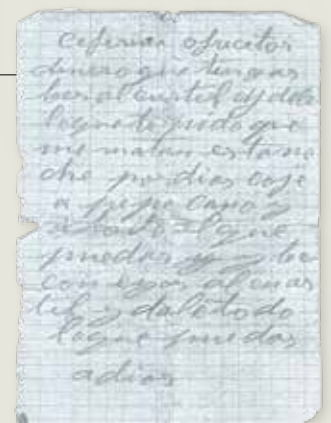 Ceferina ofrece tos
dinero que tengas
bes al cuartel y dale
lo que te pido que
me matan esta no
che por dios coge
a pepe Cano y
a que
puedas y be
con eyos al cuar
tel y dale todo
lo que puedas
adios